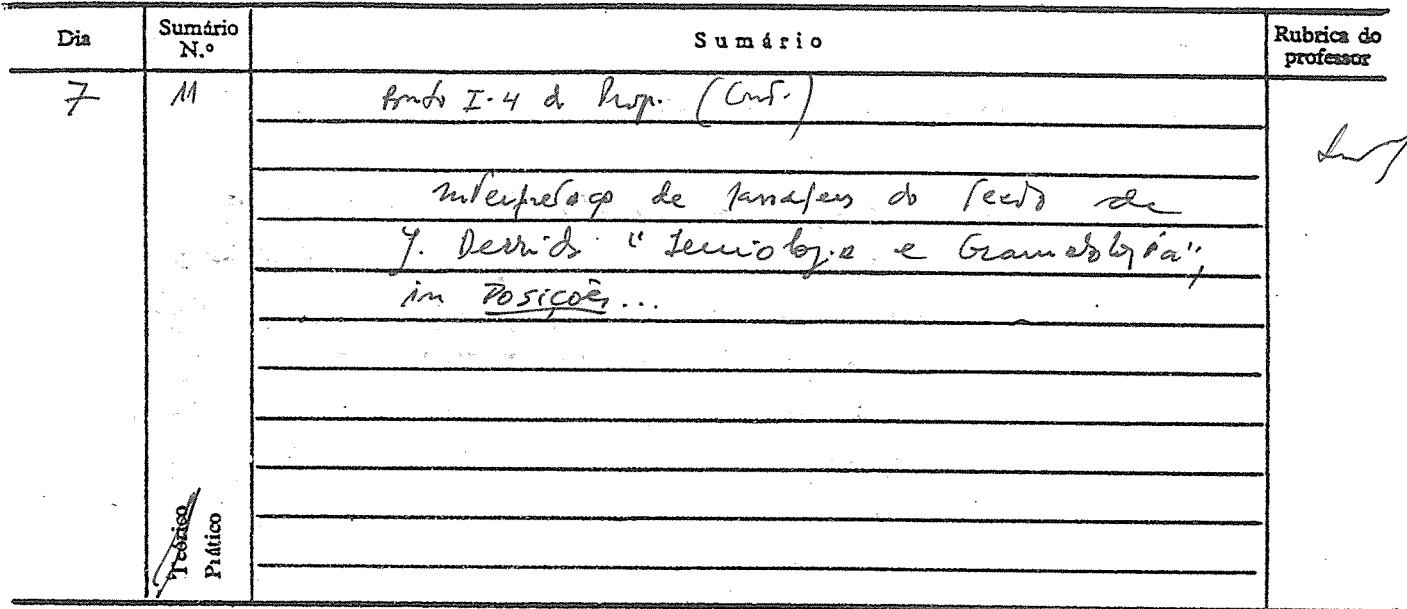 Dia Sumário N.º Sumário Rubrica do professor
7 11 Ponto I-4 do Prog. (Cont.)
Interpretação de passagens do texto de
J. Derrida "Semiologia e Gramatologia",
in Posições...
Teórico
Prático